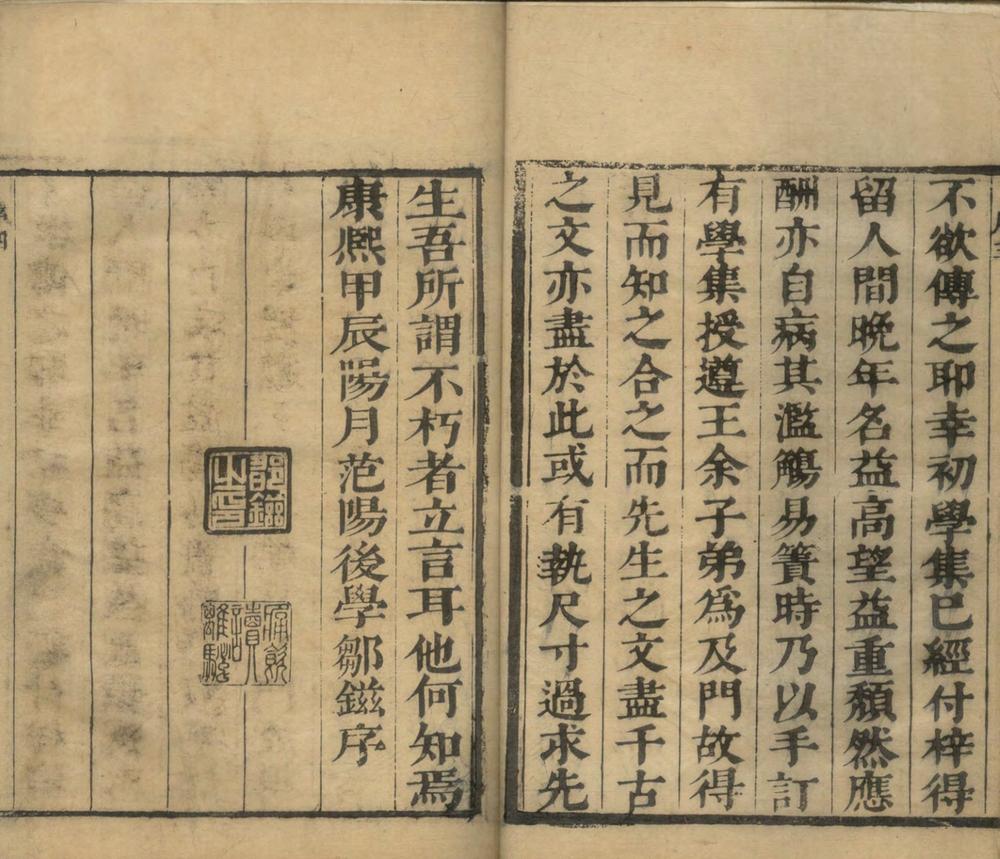 不欲傳之耶幸初學集已經付梓得
留人間晚年名益高望益重頽然應
酬亦自病其濫觴易簀時乃以手訂
有學集授遵王余子弟為及門故得
見而知之合之而先生之文盡千古
之文亦盡於此或有執尺寸過求先
生吾所謂不朽者立言耳他何知焉
康熙甲辰陽月范陽後學鄒鎡序
鄒鎡之印
讀離騷